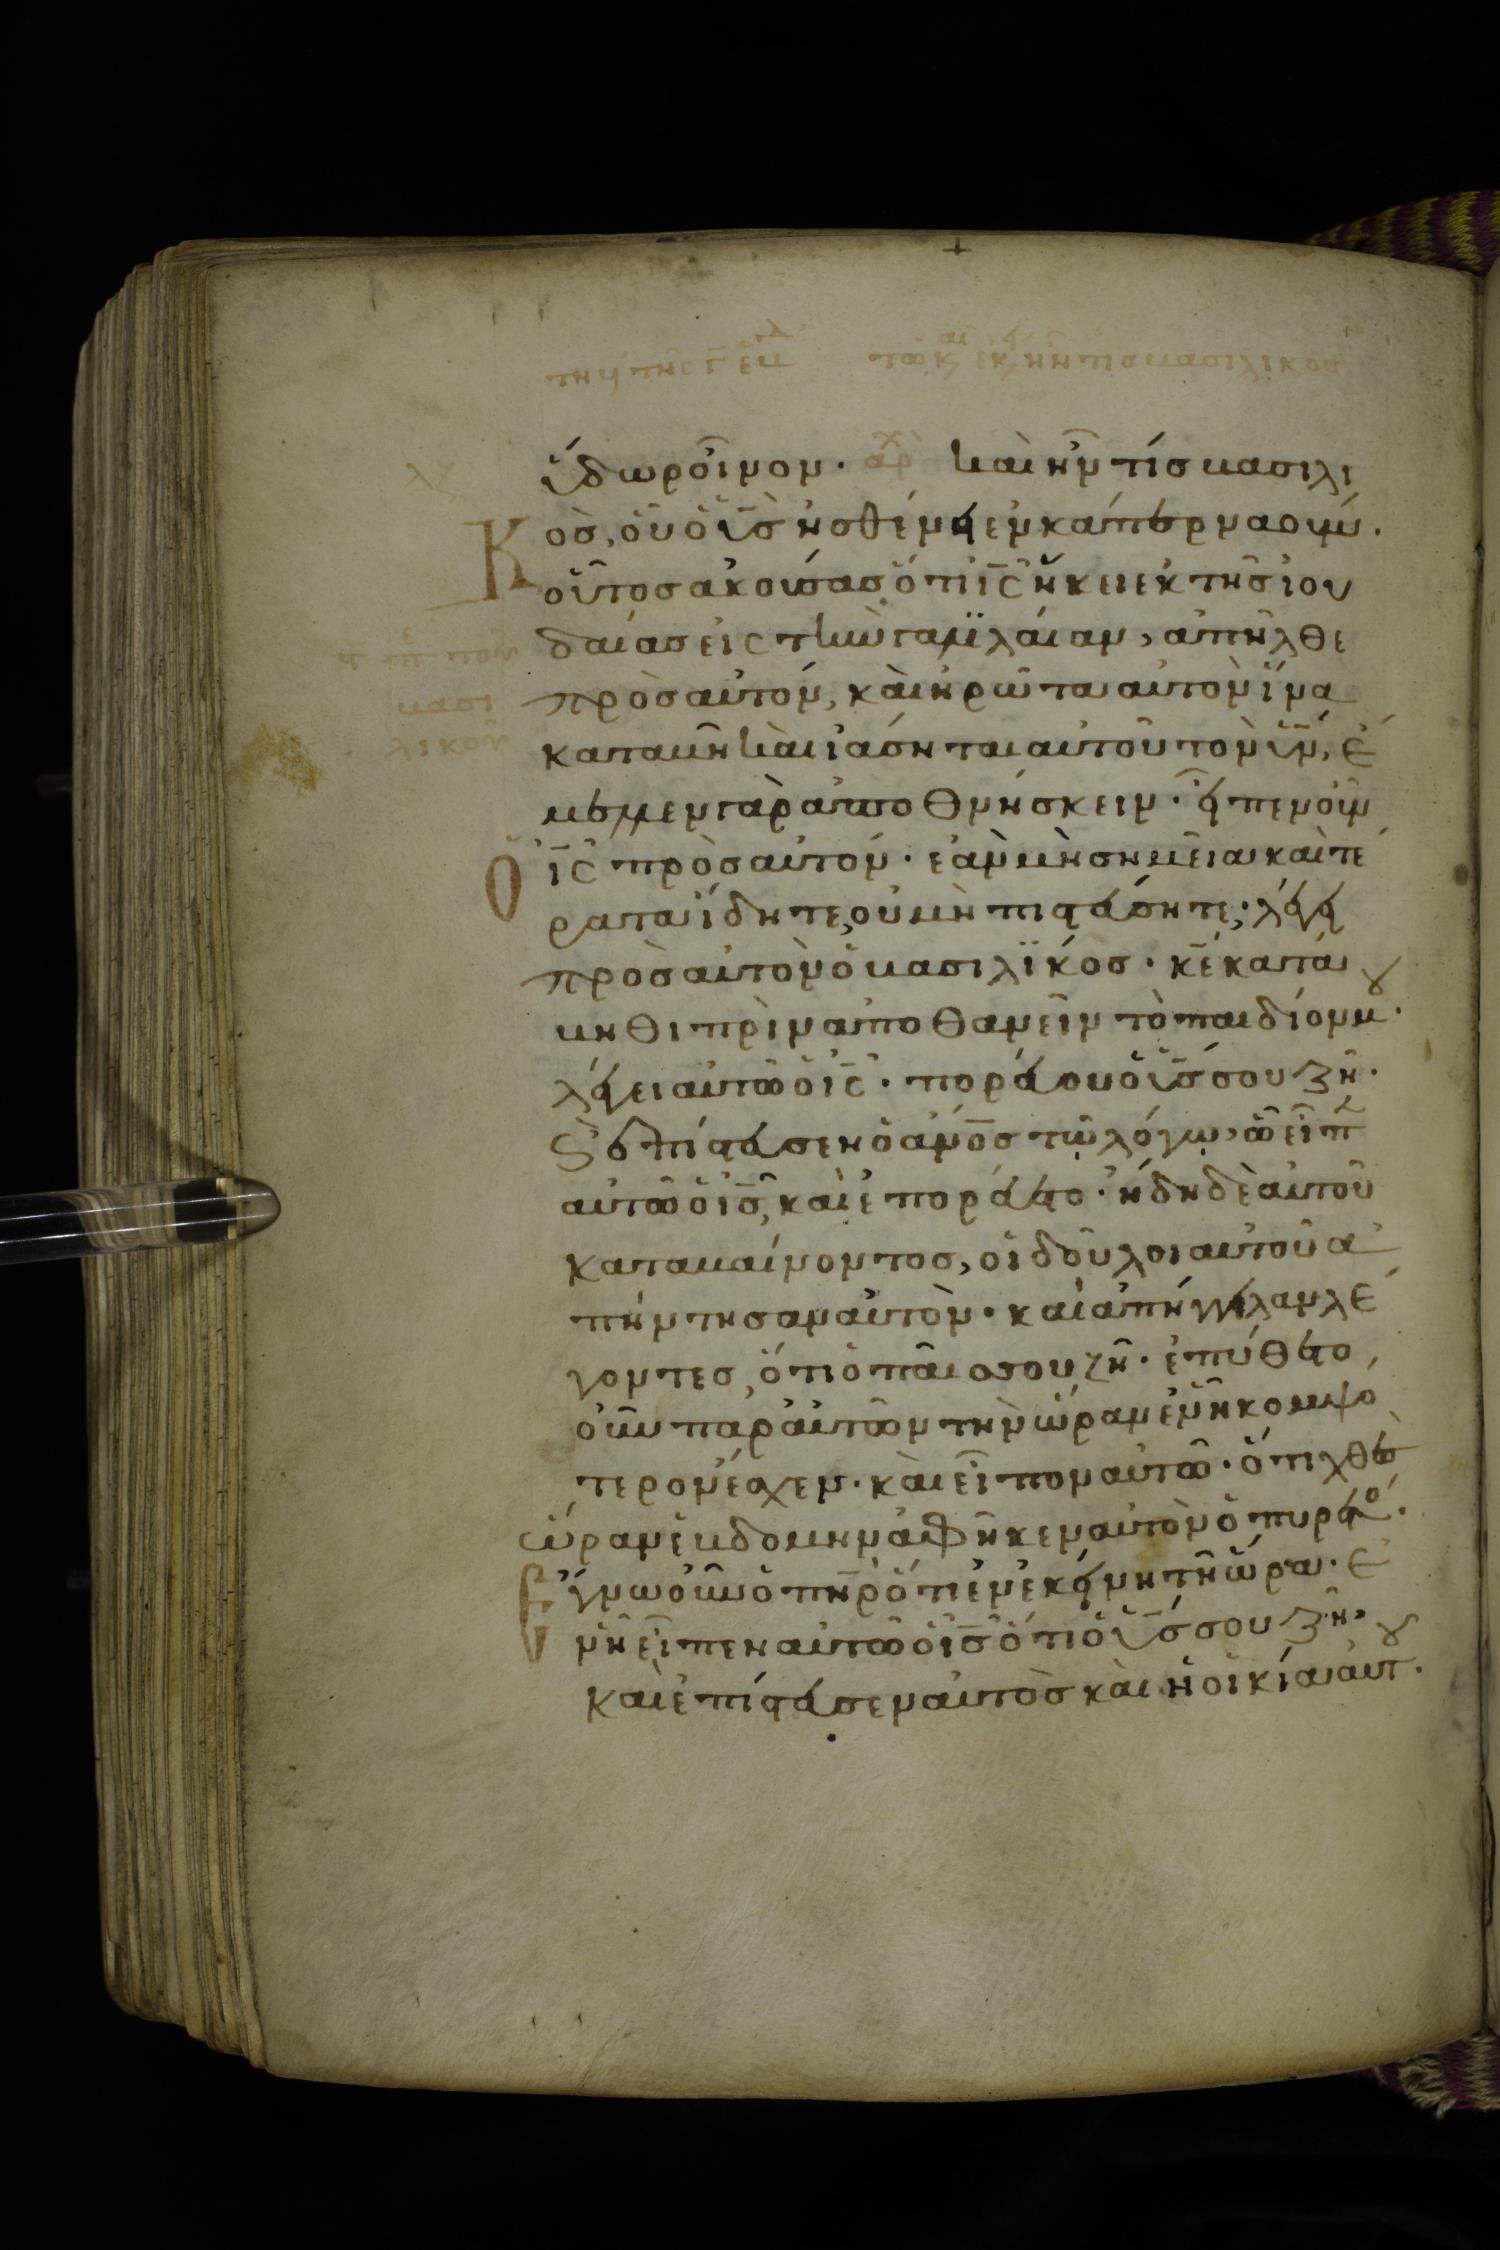 τῶ κ ἐκ ἦν τις βασιλικος
ὕδωρ οἶνον · αρχ καὶ ἦν τίς βασιλι
κὸς, οὗ ὁ υἱσ ἠσθένει ἐν καπερναούμ.
οὗτος ἀκούσας ὅτι ις ἥκει ἐκ τῆς ἰου
λζ
δαίας εἰς τὴν γαλιλαίαν, ἀπῆλθε
πρὸς αὐτόν, καὶ ἠρώτα αὐτὸν ἵνα
καταβῆ καὶ ἰάσηται αὐτοῦ τὸν υν, ἔ
π τον
βασι
λικον
μελλεν γὰρ ἀποθνήσκειν · εἶπεν οὖν
ὁ ις πρὸς αὐτόν · ἐὰν μὴ σημεῖα καὶ τέ
ρατα ἴδητε, οὐ μὴ πιστεύσητε · λέγει
πρὸς αὐτὸν ὁ βασιλϊκός · κε κατά
βηθι πρὶν ἀποθανεῖν τὸ παιδίον μου ·
λέγει αὐτῶ ὁ ις · πορεύου ὁ υσ σου ζῆ ·
ϗ ἐπίστευσεν ὁ ανος τῶ λόγω, ὧ εἶπ
αὐτῶ ὁ ις, καὶ ἐπορεύετο · ἤδη δὲ αὐτοῦ
καταβαίνοντος, οἱ δοῦλοι αὐτοῦ ἀ
πήντησαν αὐτὸν · καὶ ἀπήγγειλαν λέ
γοντες, ὅτι ὁ παῖς σου ζῆ · ἐπύθετο
οὖν παρ αὐτῶν τὴν ὥραν ἐν ἧ κομψό
τερον ἔσχεν · καὶ εἶπον αὐτῶ · ὅτι χθὲς
ὥραν ἑβδόμην ἀφῆκεν αὐτὸν ὁ πυρετός ·
Ἔγνω οὖν ὁ πηρ ὅτι ἐν ἐκείνη τῆ ὥρα · ἐ
ν ἧ εἶπεν αὐτῶ ὁ ις ὅτι ὁ υσ σου ζῆ,
καὶ ἐπίστευσεν αὐτὸς καὶ ἡ οἰκία αὐτου ·